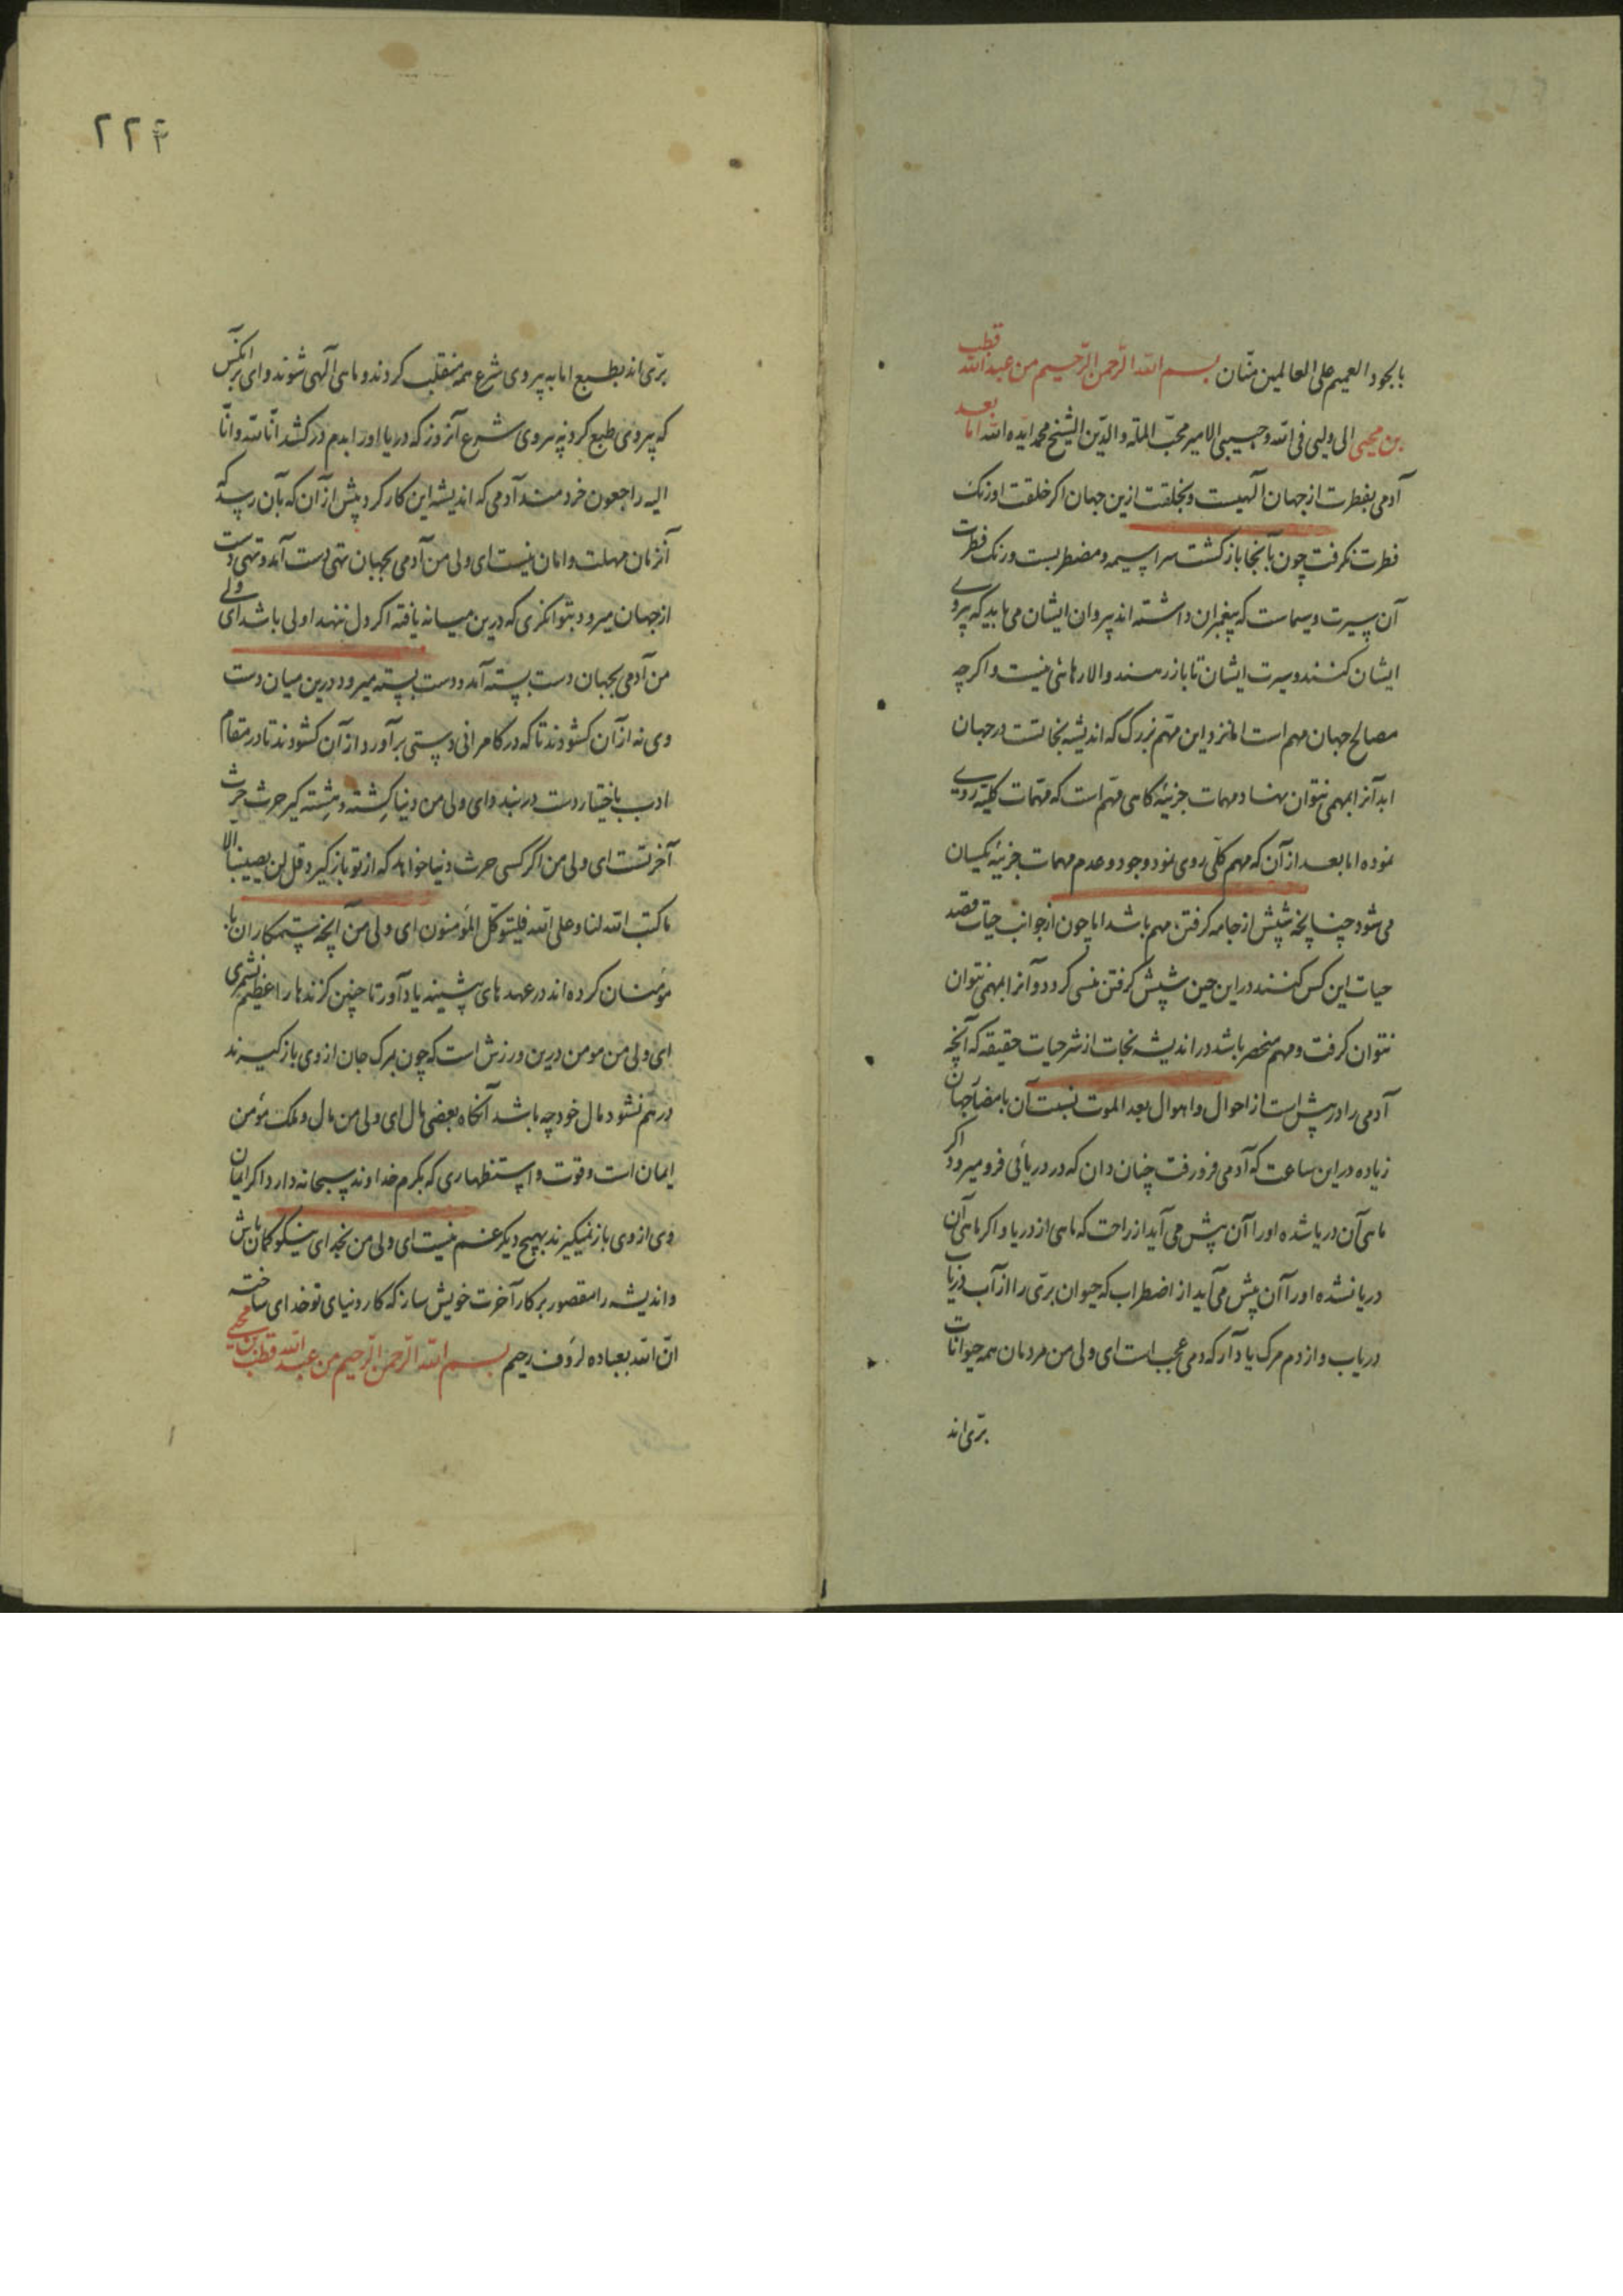 بالجود العمیم علی العالمین منّان بسم الله الرّحمن الرّحیم من عبدالله قطب
بن محیی الی ولیی فی الله و حبیبی الامیر محبّ الملّه والدّین الشیخ محمد ایّده الله اما بعد
آدمی بفطرت از جهان آلهیست و بخلقت ازین جهان اکر خلقت او رنک
فطرت نکرفت چون بآنجا بازکشت سراسیمه و مضطربست و رنک فطرت
آن سیرت و سیماست که پیغمبران داشته اند پیروان ایشان می باید که پیروی
ایشان کنند و سیرت ایشان تا باز رهند و الا رهائی نیست و اکرچه
مصالح جهان مهم است اما نزد این مهّم بزرک که اندیشه نجاتست در جهان
ابد آنرا مهمی نتوان نهاد و مهمات جزئیّه کاهی مهّم است که مهّمات کلیّه روی
نموده اما بعد از آن که مهم کلّی روی نمود وجود و عدم مهمات جزئیّه یکسان
می شود چنانچه شپش از جامه کرفتن مهم باشد اما چون از جوانب حیات قصد
حیات این کس کنند در این حین شپش کرفتن منسی کردد و آنرا مهمی نتوان
نتوان کرفت و مهم منحصر باشد در اندیشه نجات از شر حیات حقیقه که آنچه
آدمی را در پیش است از احوال و اهوال بعد الموت نسبت آن با مضار جهان
زیاده در این ساعت که آدمی فرو رفت چنان دان که در دریائی فرو میرود اکر
ماهی آن دریا شده او را آن پیش می آید از راحت که ماهی از دریا و اکر ماهی آن
دریا نشده او را آن پیش می آید از اضطراب که حیوان برّی را از آب دریا
دریاب و از دم مرک یاد آر که دمی عجب است ای ولی من مردمان همه حیوانات
برّی اند
۲۲۴
برّی اند بطبع اما به پیروی شرع همه منقلب کردند و ماهی آلهی شوند وای بر آنکس
که پیروی طبع کرد نه پیروی شرع آنروز که دریا او را بدم درکشد انّا لله و انّا
الیه راجعون خردمند آدمی که اندیشه این کار کرد پیش از آن که بآن رسد که
آنزمان مهلت و امان نیست ای ولی من آدمی بجهان تهی دست آمد و تهی دست
از جهان میرود بتوانکری که درین میانه یافته اکر دل ننهد اولی باشد ای ولی
من آدمی بجهان دست بسته آمد و دست بسته میرود درین میان دست
وی نه از آن کشودند تا که در کامرانی دستی برآورد از آن کشودند تا در مقام
ادب باختیار دست دربندد ای ولی من دنیا کِشته و هِشته کیر حرث حرث
آخرتست ای ولی من اکر کسی حرث دنیا خواهد که از تو باز کیرد قل لن یصیبنا الا
ما کتب الله لنا و علی الله فلیتوکّل المؤمنون ای ولی من آنچه ستمکاران با
مؤمنان کرده اند در عهدهای پیشینه یاد آور تا چنین کزندها را عظیم نشمری
ای ولی من مومن درین ورزش است که چون بمرک جان از وی باز کیرند
درهم نشود مال خود چه باشد آنکاه بعضی مال ای ولی من مال و ملک مؤمن
ایمان است و قوت و استظهاری که بکرم خداوند سبحانه دارد اکر ایمان
وی از وی باز نمیکیرند بهیچ دیکر غم نیست ای ولی من بخدای نیکو کمان باش
و اندیشه را مقصور بر کار آخرت خویش ساز که کار دنیای تو خدای ساخته
انّ الله بعباده لرؤف رحیم بسم الله الرّحمن الرّحیم من عبدالله قطب بن محیی